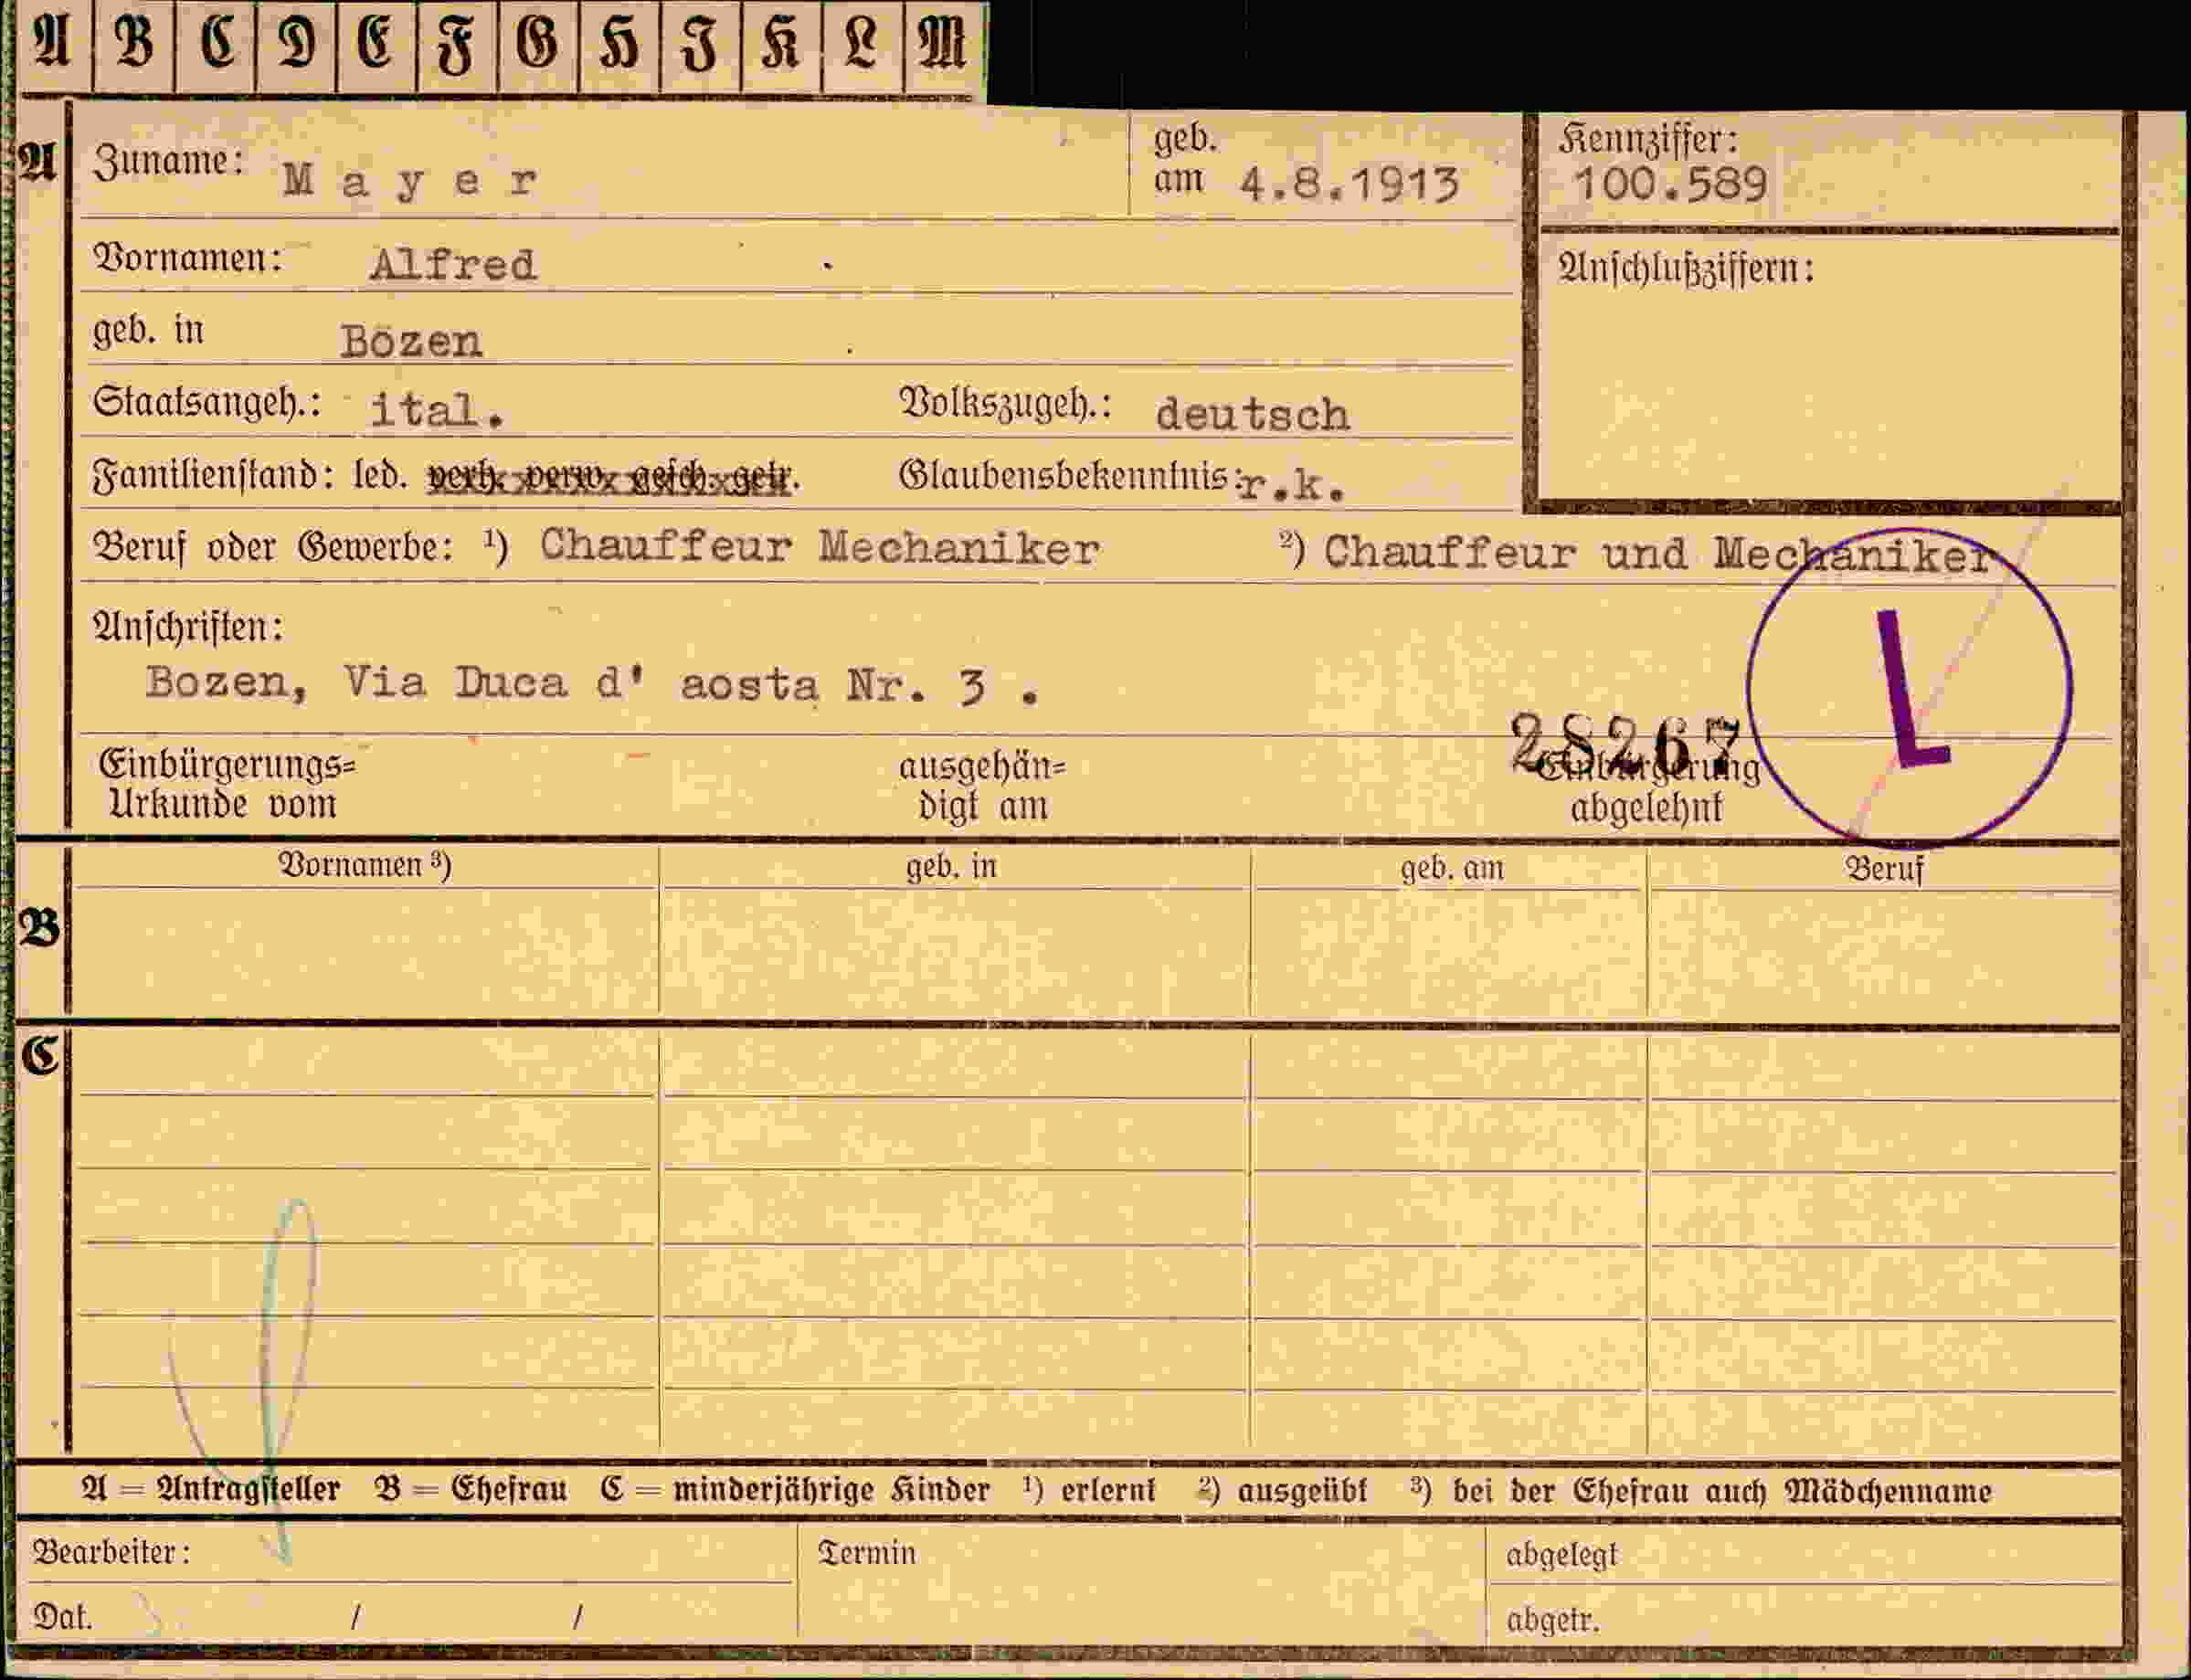 A B C D E F G H J K L M
A Zuname: Mayer geb. am 4.8.1913 Kennziffer: 100.589
Vornamen: Alfred Anschlußziffern:
geb. in Bozen
Staatsangeh.: ital. Volkszugeh.: deutsch
Familienstand: led. verh. verw. gesch. getr. Glaubensbekenntnis: r.k.
Beruf oder Gewerbe: ¹) Chauffeur Mechaniker ²) Chauffeur und Mechaniker
Anschriften:
Bozen, Via Duca d' aosta Nr. 3 .
L
28267
Einbürgerungs= ausgehän= Einbürgerung
Urkunde vom digt am abgelehnt
Vornamen ³) geb. in geb. am Beruf
B
C
A = Antragsteller B = Ehefrau C = minderjährige Kinder ¹) erlernt ²) ausgeübt ³) bei der Ehefrau auch Mädchenname
Bearbeiter: Termin abgelegt
Dat. / / abgetr.